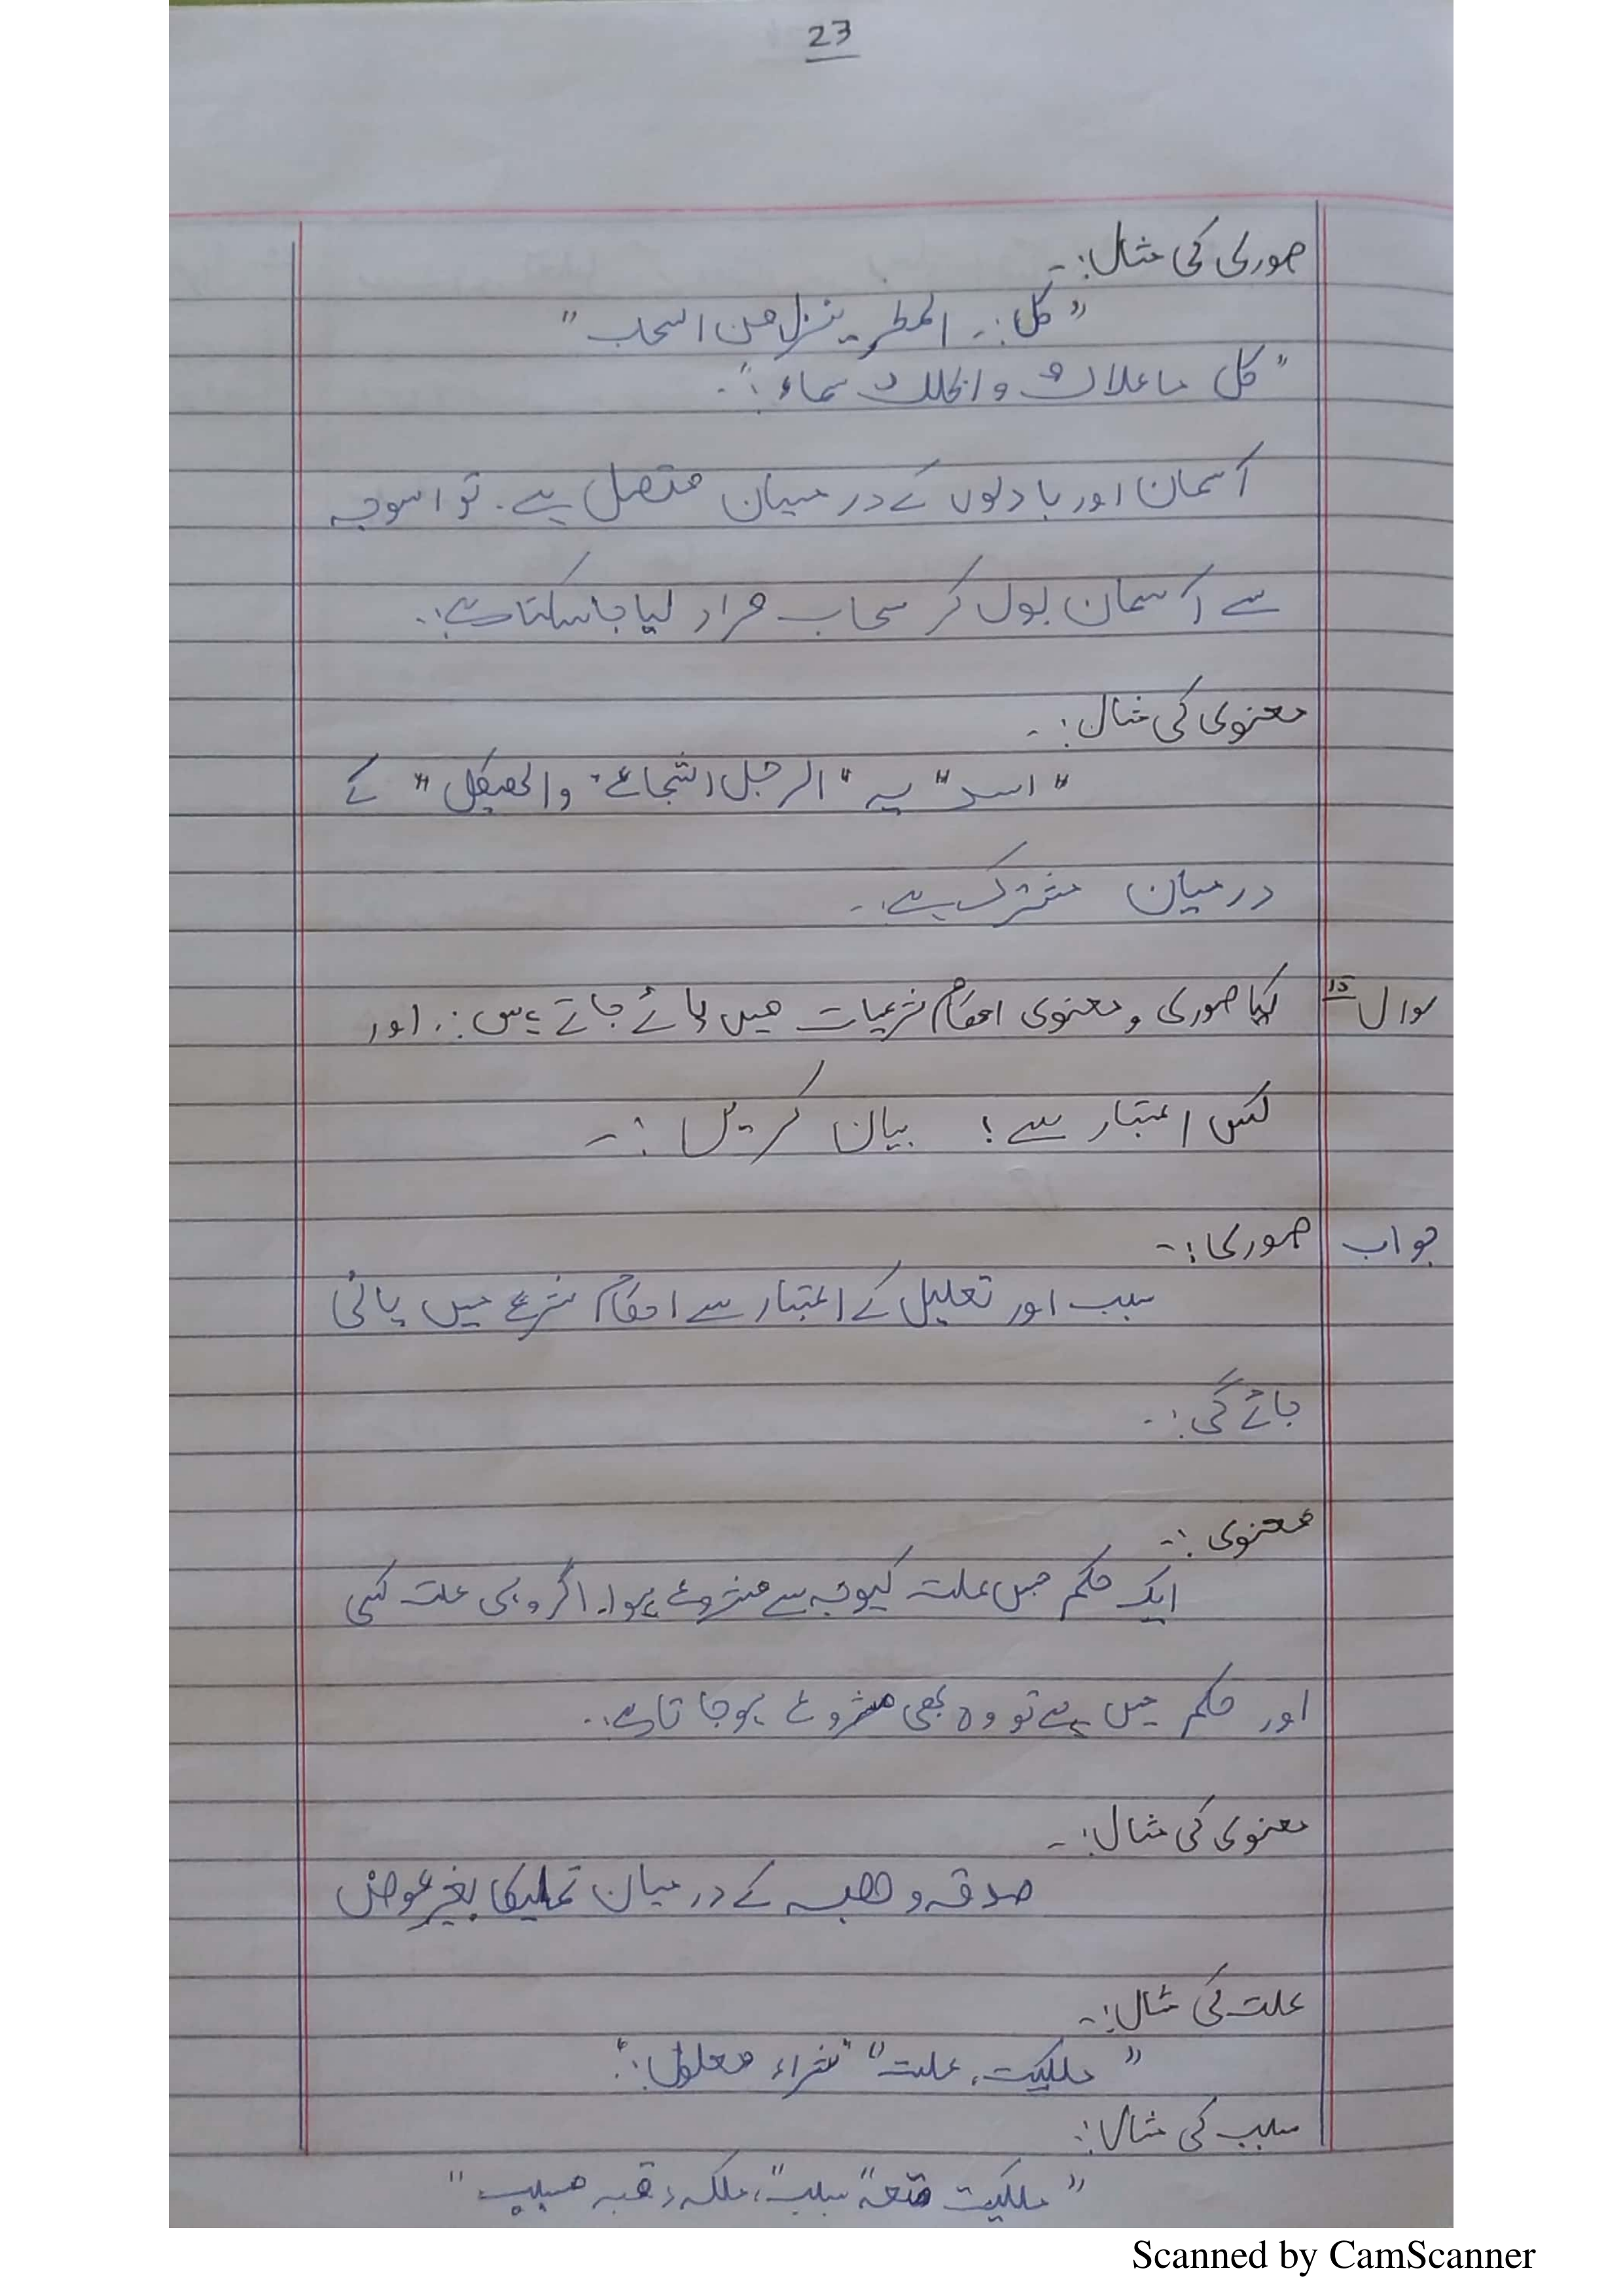 23
صوری کی مثال:۔
" کل:۔ المطر ینزل من السحاب "
" کل ما علاک و اظلک سماء:۔
آسمان اور بادلوں کے درمیان متصل ہے۔ تو اسوجہ
سے آسمان بول کر سحاب مراد لیا جاسکتا ہے:۔
معنوی کی مثال:۔
" اسد " یہ " الرجل الشجاع " والھیکل " کے
درمیان مشترک ہے:۔
سوال 15 کیا صوری و معنوی احکام شرعیات میں پائے جاتے ہیں:۔ اور
کس اعتبار سے؛ بیان کریں:۔
جواب صوری:۔
سبب اور تعلیل کے اعتبار سے احکام شرع میں پائی
جائے گی:۔
معنوی:۔
ایک حکم جس علت کیوجہ سے مشروع ہوا۔ اگر وہی علت کسی
اور حکم میں ہے تو وہ بھی مشروع ہو جاتا ہے:۔
معنوی کی مثال:۔
صدقہ و ھبہ کے درمیان تملیکا بغیر عوض
علت کی مثال:۔
" ملکیت، علت " " شراء معلول:۔"
سبب کی مثال:۔
" ملکیت متعہ " سبب "، ملک رقبہ مسبب "
Scanned by CamScanner